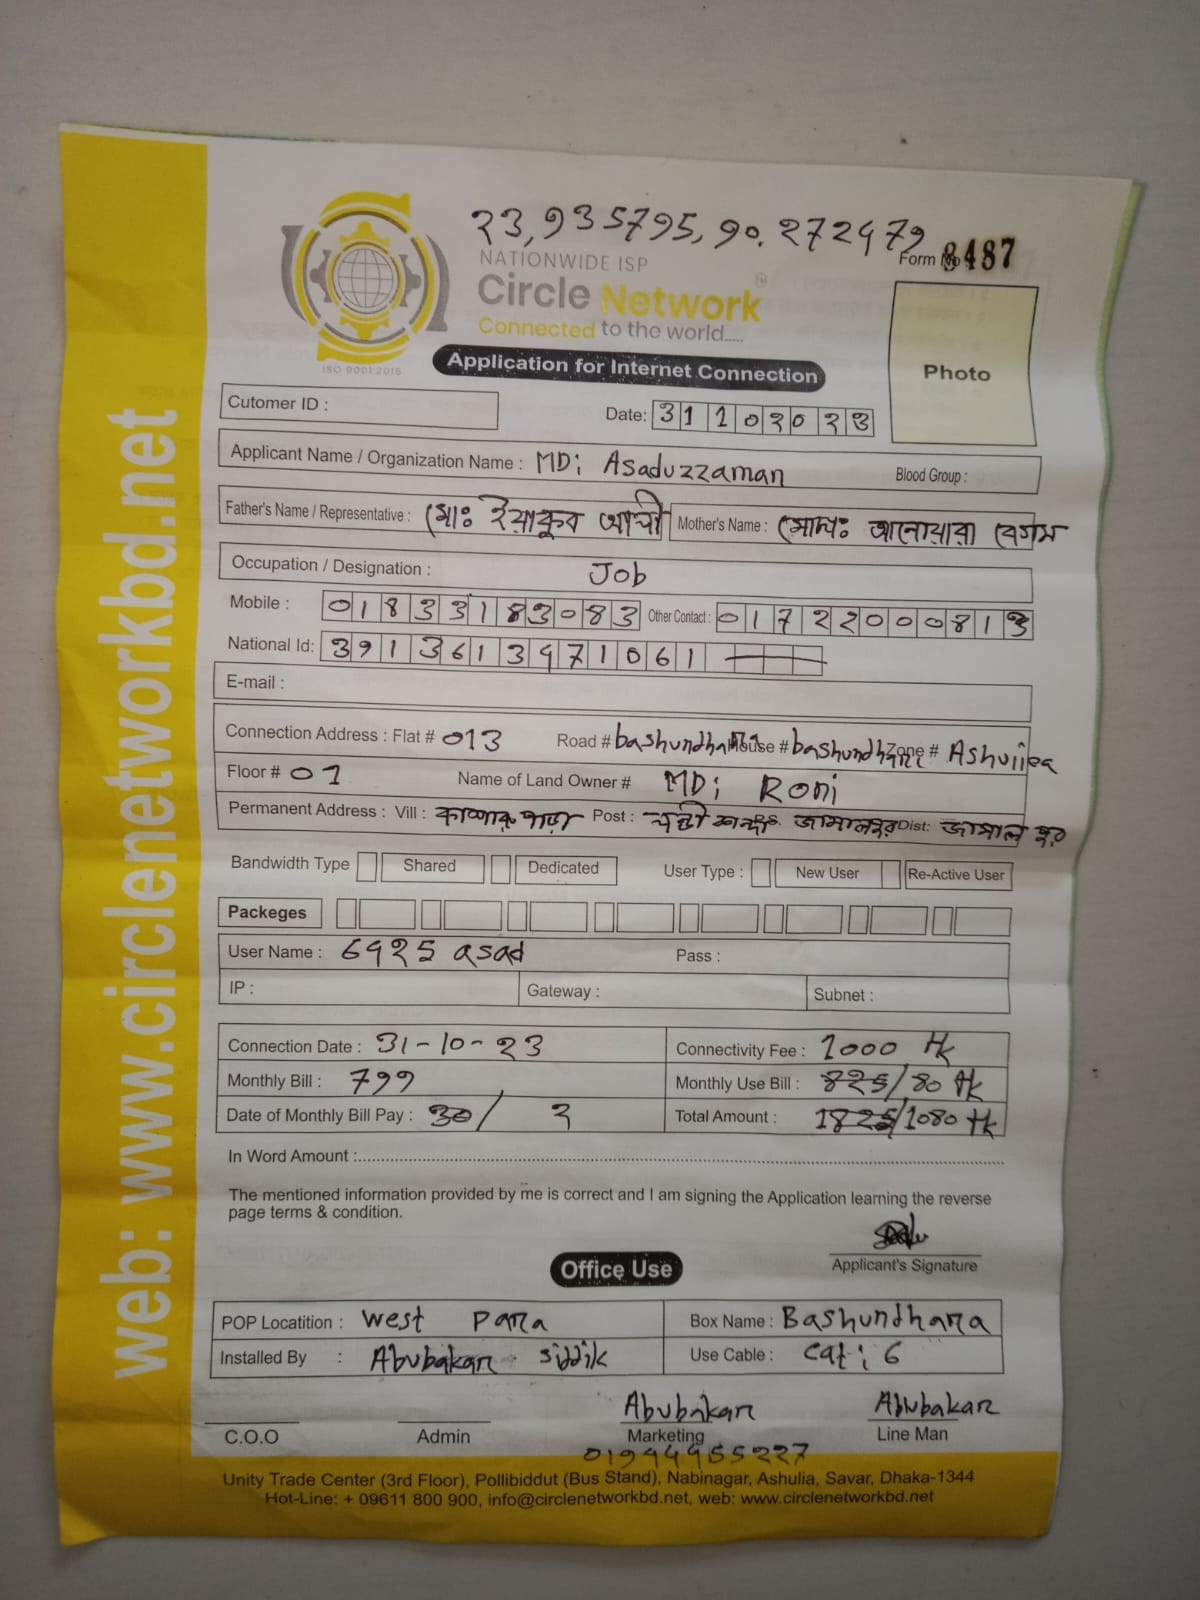 23,935795,90.272479
Form No 8487
NATIONWIDE ISP
Circle Network
TM
Connected to the world.....
ISO 9001:2015
Application for Internet Connection
Photo
Cutomer ID :
Date: 31102023
Applicant Name / Organization Name : MD; Asaduzzaman Blood Group :
Father's Name / Representative : মোঃ ইয়াকুব আলী Mother's Name : মোছাঃ আনোয়ারা বেগম
Occupation / Designation : Job
Mobile : 01833183083 Other Contact : 01722000813
National Id: 3913613971061
E-mail :
Connection Address : Flat # 013 Road # bashundhara House # bashundhara Zone # Ashuiiea
Floor # 01 Name of Land Owner # MD; Roni
Permanent Address : Vill : Post : P.S. জামালপুর Dist: জামালপুর
Bandwidth Type Shared Dedicated User Type : New User Re-Active User
Packeges
User Name : 6925 asad Pass :
IP : Gateway : Subnet :
Connection Date : 31-10-23 Connectivity Fee : 1000 Tk
Monthly Bill : 799 Monthly Use Bill : 825/80 Tk
Date of Monthly Bill Pay : 30/ 2 Total Amount : 1825/1080 Tk
In Word Amount :
The mentioned information provided by me is correct and I am signing the Application learning the reverse
page terms & condition.
Applicant's Signature
Office Use
POP Locatition : West Para Box Name : Bashundhara
Installed By : Abubakar Siddik Use Cable : Cat; 6
Abubakar Abubakar
C.O.O Admin Marketing Line Man
01944955227
Unity Trade Center (3rd Floor), Pollibiddut (Bus Stand), Nabinagar, Ashulia, Savar, Dhaka-1344
Hot-Line: + 09611 800 900, info@circlenetworkbd.net, web: www.circlenetworkbd.net
web: www.circlenetworkbd.net